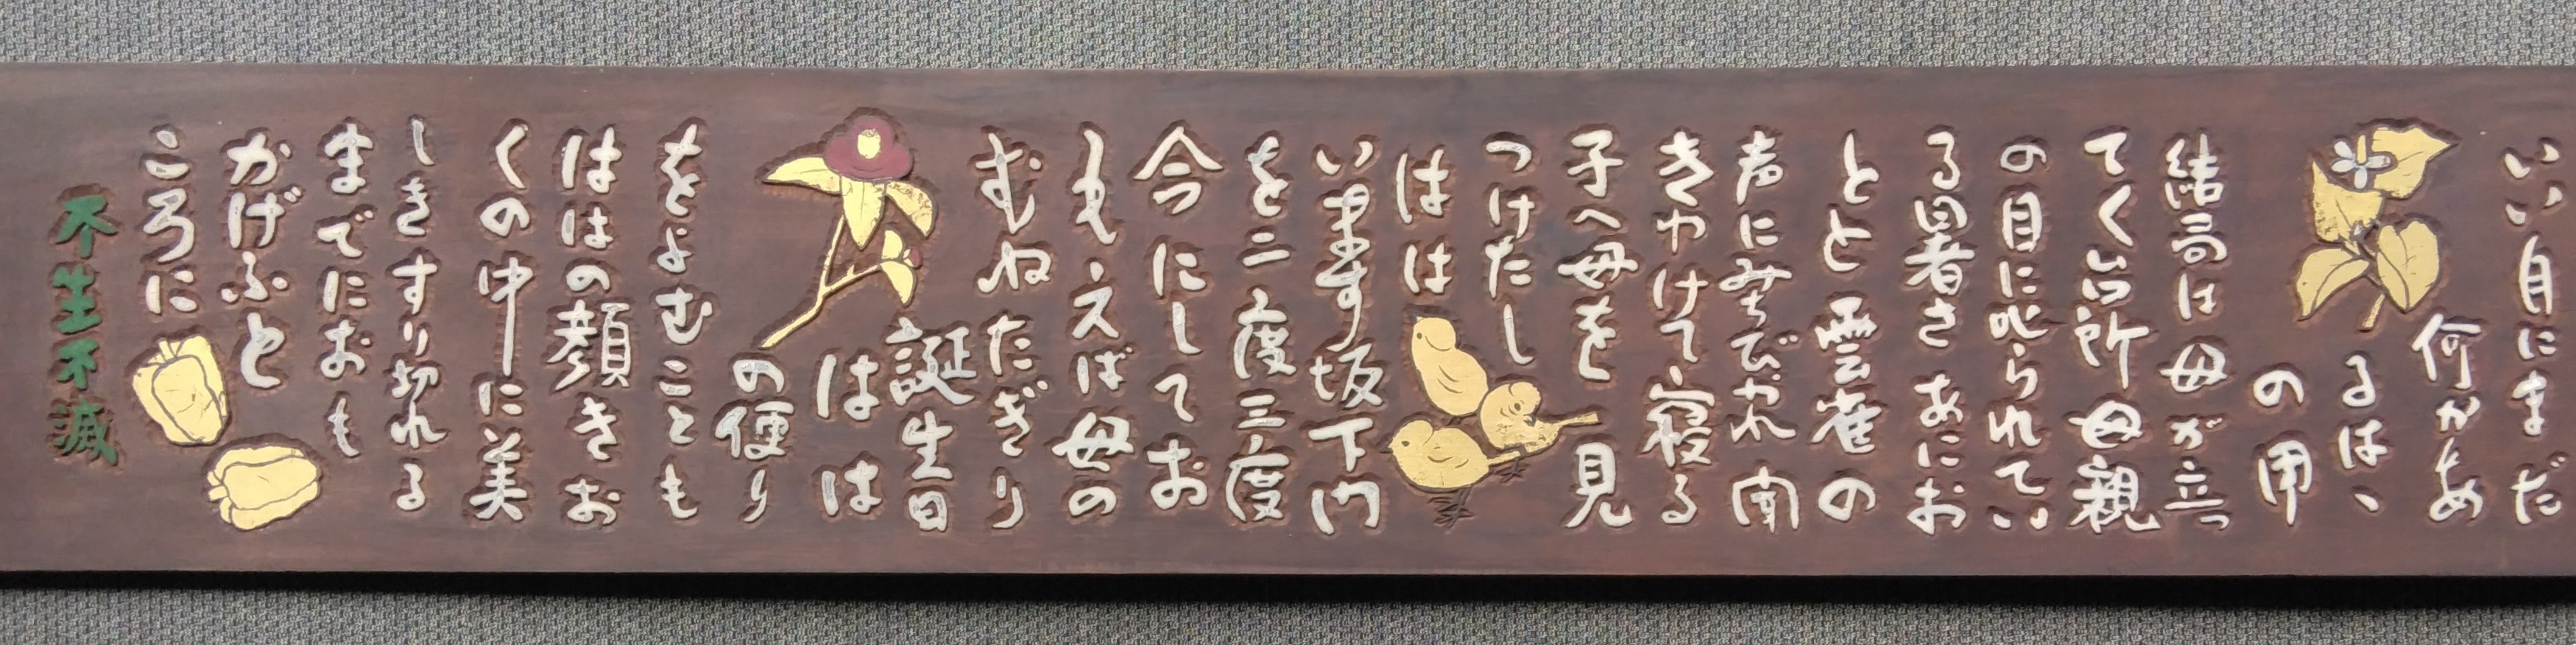 いい自にまだ
何かあ
るは、
の甲
結局は母が立っ
てく台所母親
の目に叱られてい
る暑さあにお
とと雲雀の
声に
きわけて寝る
子へ母を見
つけたし
はは
います坂下門
を二度三度
今にしてお
もえば母の
むねたぎり
誕生日
はは
の便り
をよむことも
ははの顔きお
くの中に美
しきすり切れる
までにおも
かげふと
ころに
不生不滅